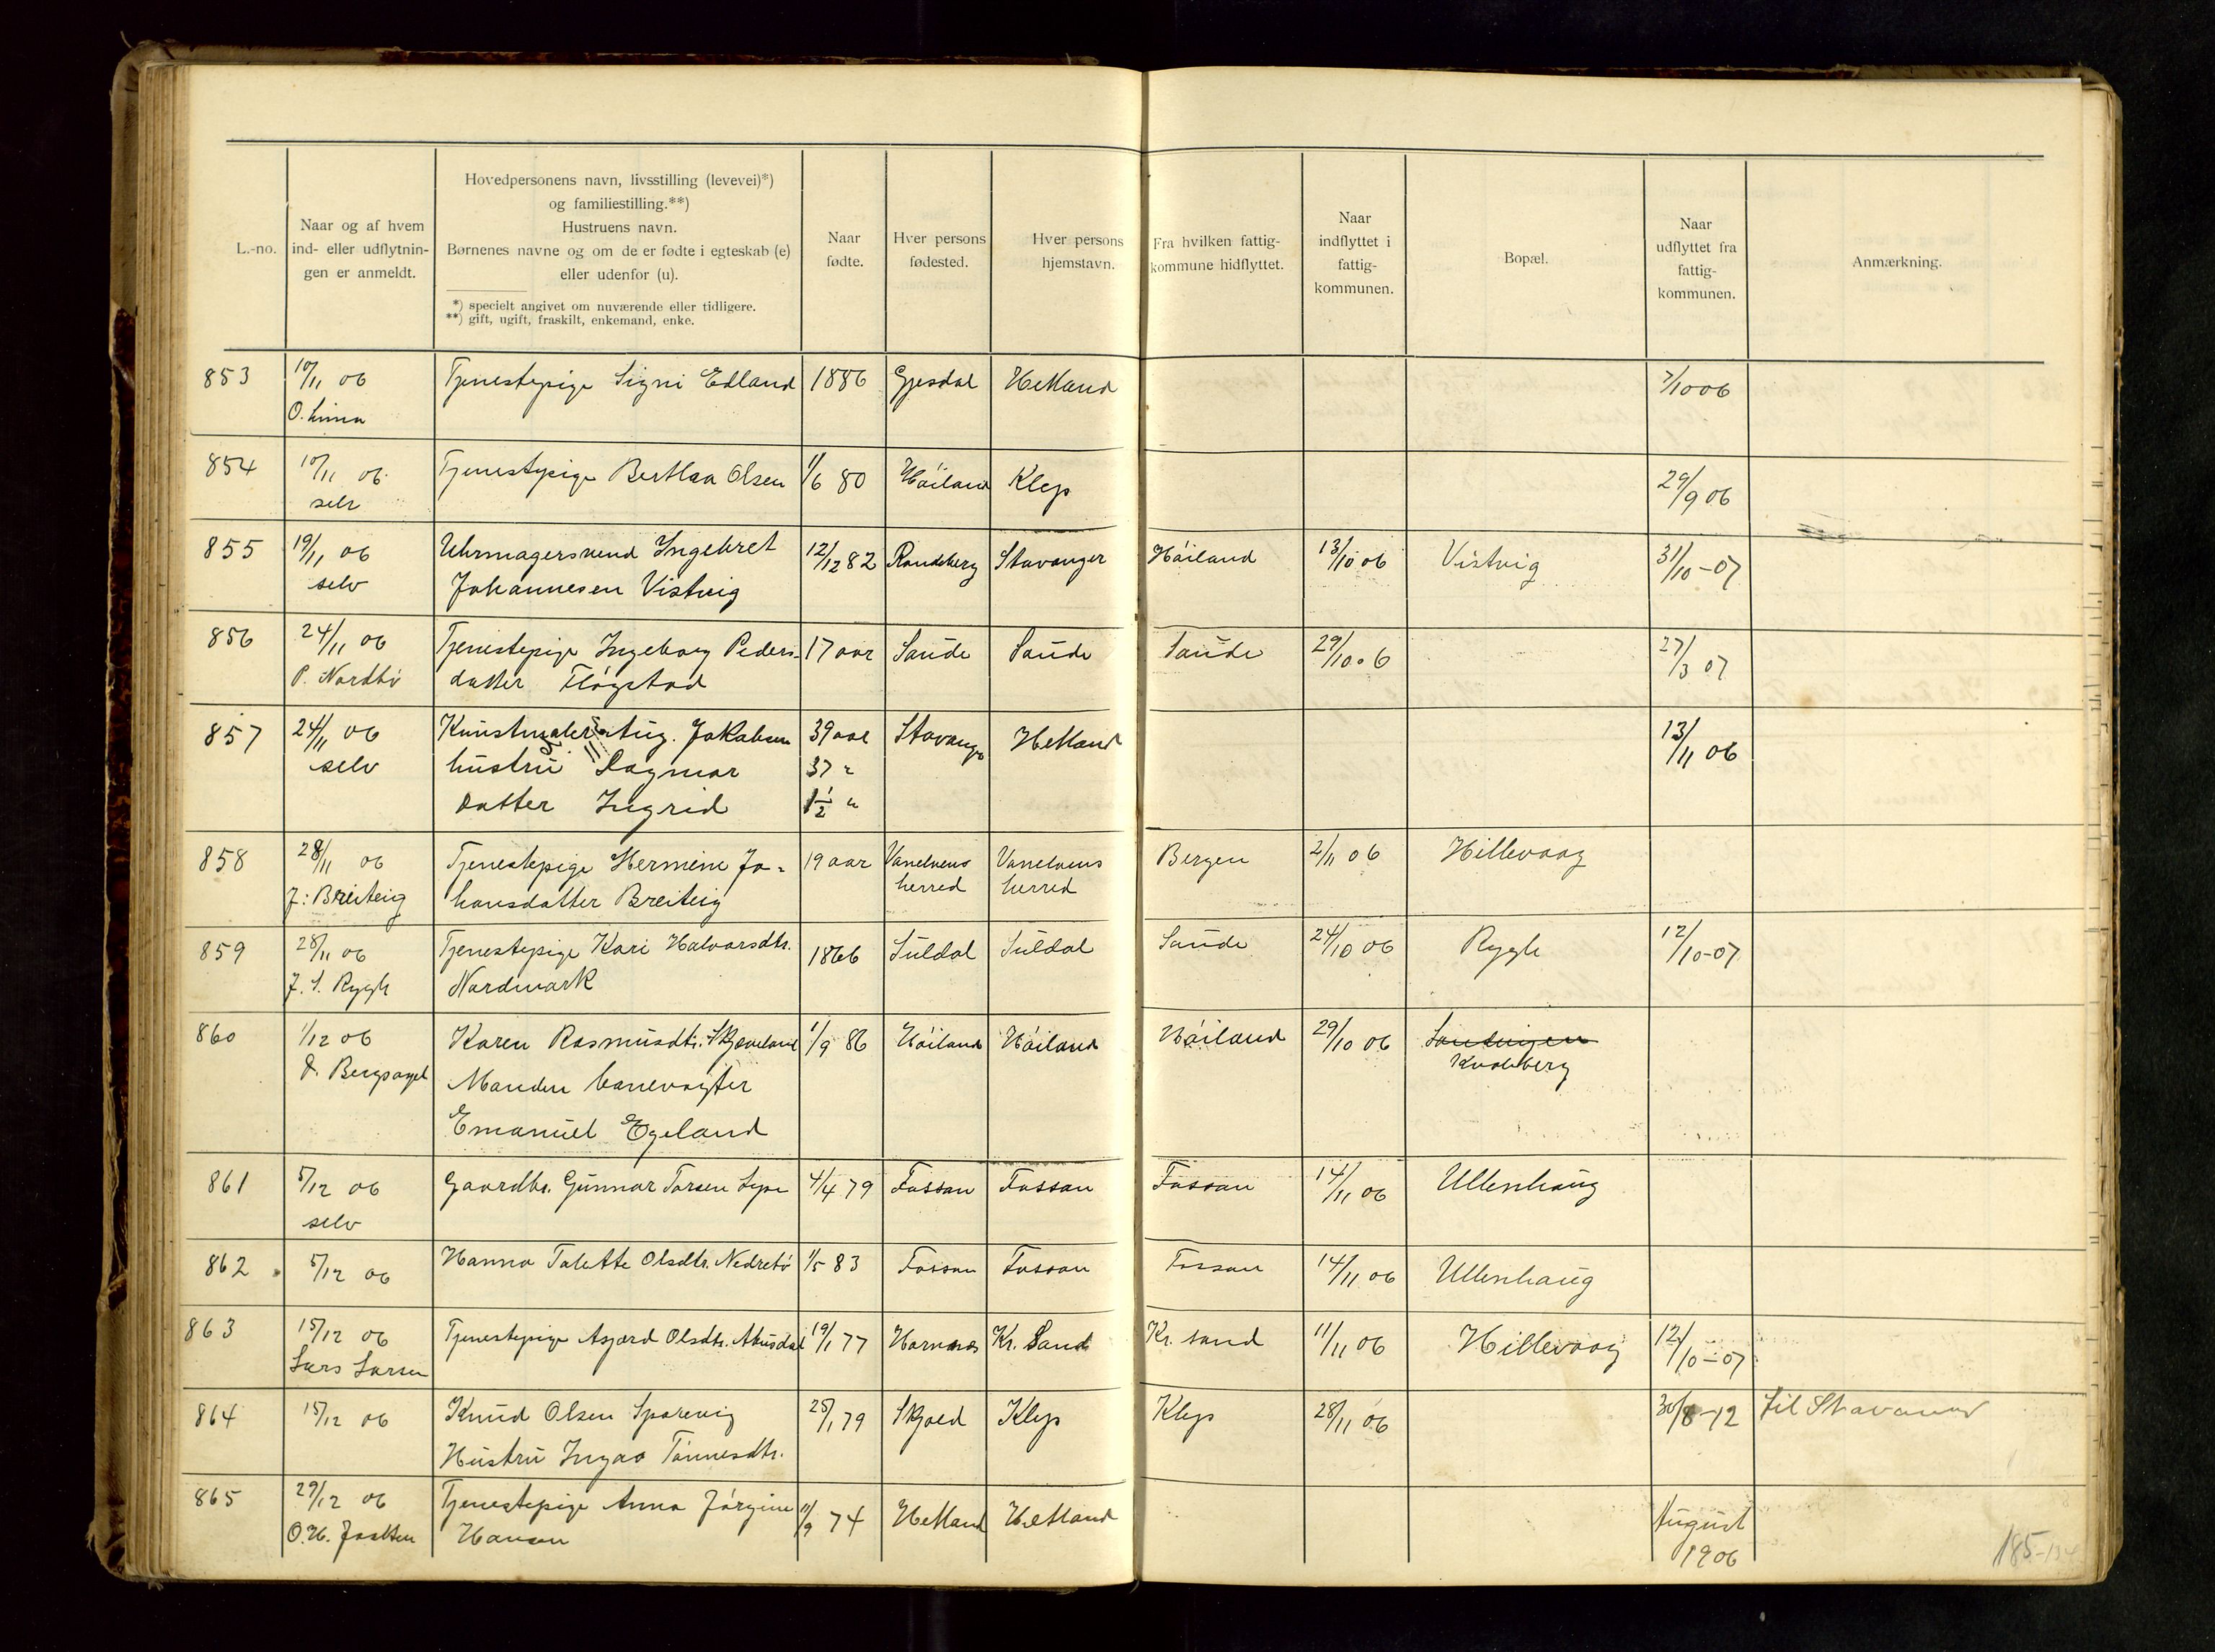 L.-no.
Naar og af hvem
ind- eller udflytnin-
gen er anmeldt.
Hovedpersonens navn, livsstilling (levevei)*)
og familiestilling.**)
Hustruens navn.
Børnenes navne og om de er fødte i egteskab (e)
eller udenfor (u).
*) specielt angivet om nuværende eller tidligere.
**) gift, ugift, fraskilt, enkemand, enke.
Naar
fødte.
Hver persons
fødested.
Hver persons
hjemstavn.
Fra hvilken fattig-
kommune hidflyttet.
Naar
indflyttet i
fattig-
kommunen.
Bopæl.
Naar
udflyttet fra
fattig-
kommunen.
Anmærkning.
853 10/11 06 Tjenestepige Signi Edland 1886 Gjesdal Hetland 7/10 06
O. Lima
854 10/11 06 Tjenestepige Berthea Olsen 1/6 80 Höiland Klep 29/9 06
selv
855 19/11 06 Uhrmagersvend Ingebret 12/12 82 Randeberg Stavanger Höiland 13/10 06 Vistvig 31/10-07
selv Johannesen Vistvig
856 24/11 06 Tjenestepige Ingeborg Peders- 17 aar Saude Saude Saude 29/10 06 27/3 07
P. Nordbö datter Flögstad
857 24/11 06 Kunstmaler Aug. Jakobsen 39 aar Stavanger Hetland 13/11 06
selv hustru Dagmar 37 "
Datter Ingrid 1½ "
858 28/11 06 Tjenestepige Hermine Jo- 19 aar Vanelvens Vanelvens Bergen 2/11 06 Hillevaag
J. Breiteig hansdatter Breiteig herred herred
859 28/11 06 Tjenestepige Kari Halvorsdtr. 1866 Suldal Suldal Saude 24/10 06 Rygh 12/10-07
J. S. Rygh Nordmark
860 1/12 06 Karen Rasmusdtr. Skjæveland 1/9 86 Höiland Höiland Höiland 29/10 06
Bergsagel Manden banevogter Kvaleberg
Emanuel Egeland
861 5/12 06 Gaardbr. Gunnar Torsen Lyse 4/4 79 Fossan Fossan Fossan 14/11 06 Ullenhaug
selv
862 5/12 06 Hanna Talette Olsdtr. Nedrebö 1/5 83 Fossan Fossan Fossan 14/11 06 Ullenhaug
863 15/12 06 Tjenestepige Asgjerd Olsdtr. 19/1 77 Hornnes Kr. Sand Kr. sand 11/11 06 Hillevaag 12/10-07
Lars Larsen
864 15/12 06 Knud Olsen Sporevig 25/1 79 Skjold Klep Klep 28/11 06 30/8-12 til Stavanger
Hustru Inga Tönnesdtr.
865 29/12 06 Tjenestepige Anna Jörgine 11/9 74 Hetland Hetland August
O. H. Joatten Hansen 1906
185-